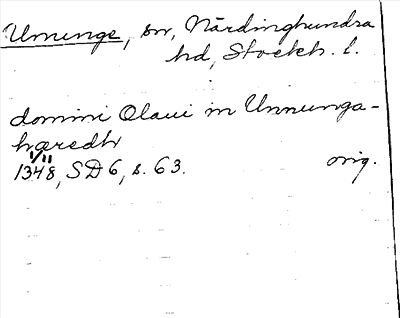 Unninge, sn, Närdinghundra
hd, Stockh. l.
domini Olaui in Unnunga-
hæredh
1/11
1348, SD6, s. 63. orig.